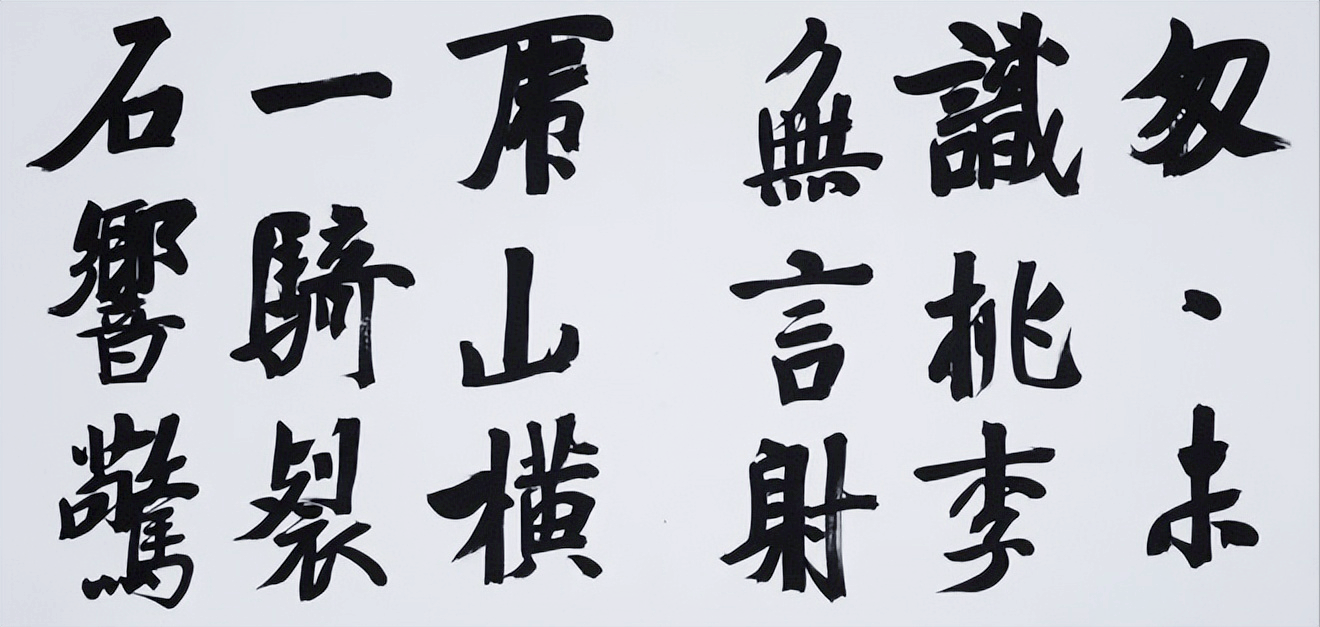 匆、未
識桃李
無言射
虎山横
一騎裂
石響驚